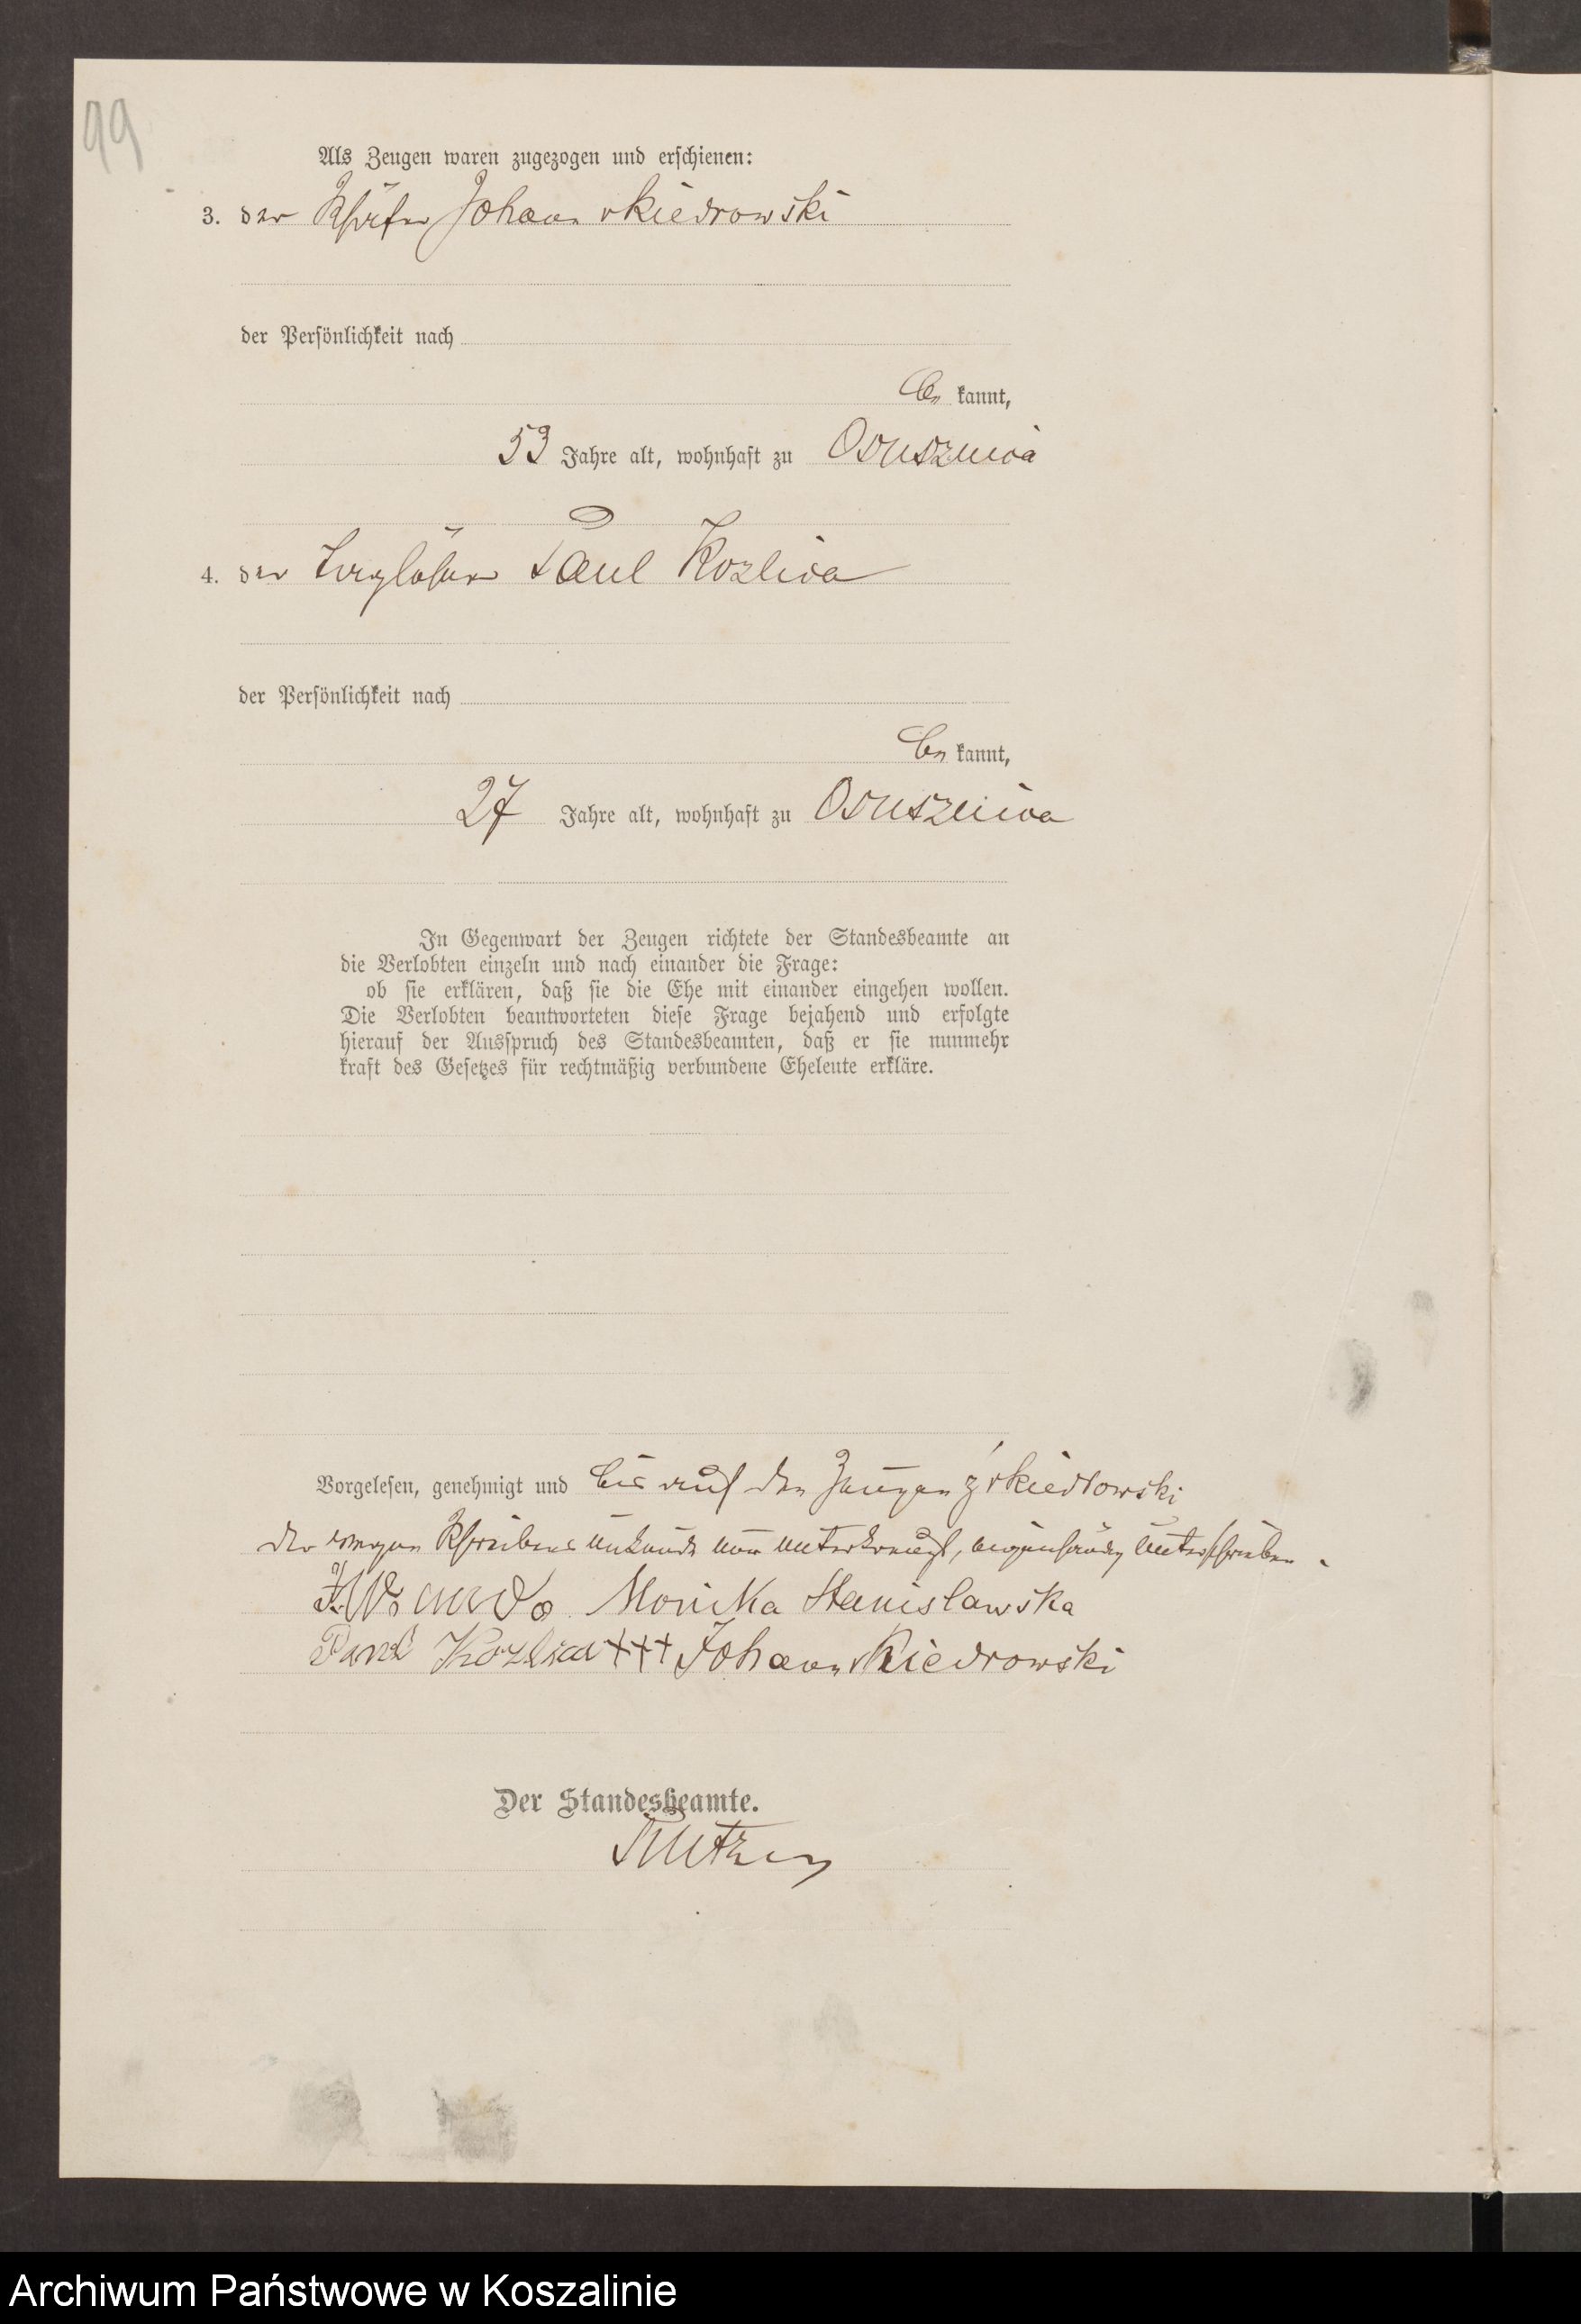 99
Als Zeugen waren zugezogen und erschienen:
3. der Schäfer Johann v Kiedrowski
der Persönlichkeit nach
be kannt,
53 Jahre alt, wohnhaft zu Ossusznica
4. der Paul Kozlica
der Persönlichkeit nach
be kannt,
27 Jahre alt, wohnhaft zu Ossusznica
In Gegenwart der Zeugen richtete der Standesbeamte an
die Verlobten einzeln und nach einander die Frage:
ob sie erklären, daß sie die Ehe mit einander eingehen wollen.
Die Verlobten beantworteten diese Frage bejahend und erfolgte
hierauf der Ausspruch des Standesbeamten, daß er sie nunmehr
kraft des Gesetzes für rechtmäßig verbundene Eheleute erkläre.
Vorgelesen, genehmigt und bis auf den Zeugen v Kiedrowski
der wegen Schreibens unkunde nur unterkreuzt, eigenhändig unterschrieben.
Monika Stanislawska
Paul Kozlica +++ Johann v Kiedrowski
Der Standesbeamte.
Archiwum Państwowe w Koszalinie